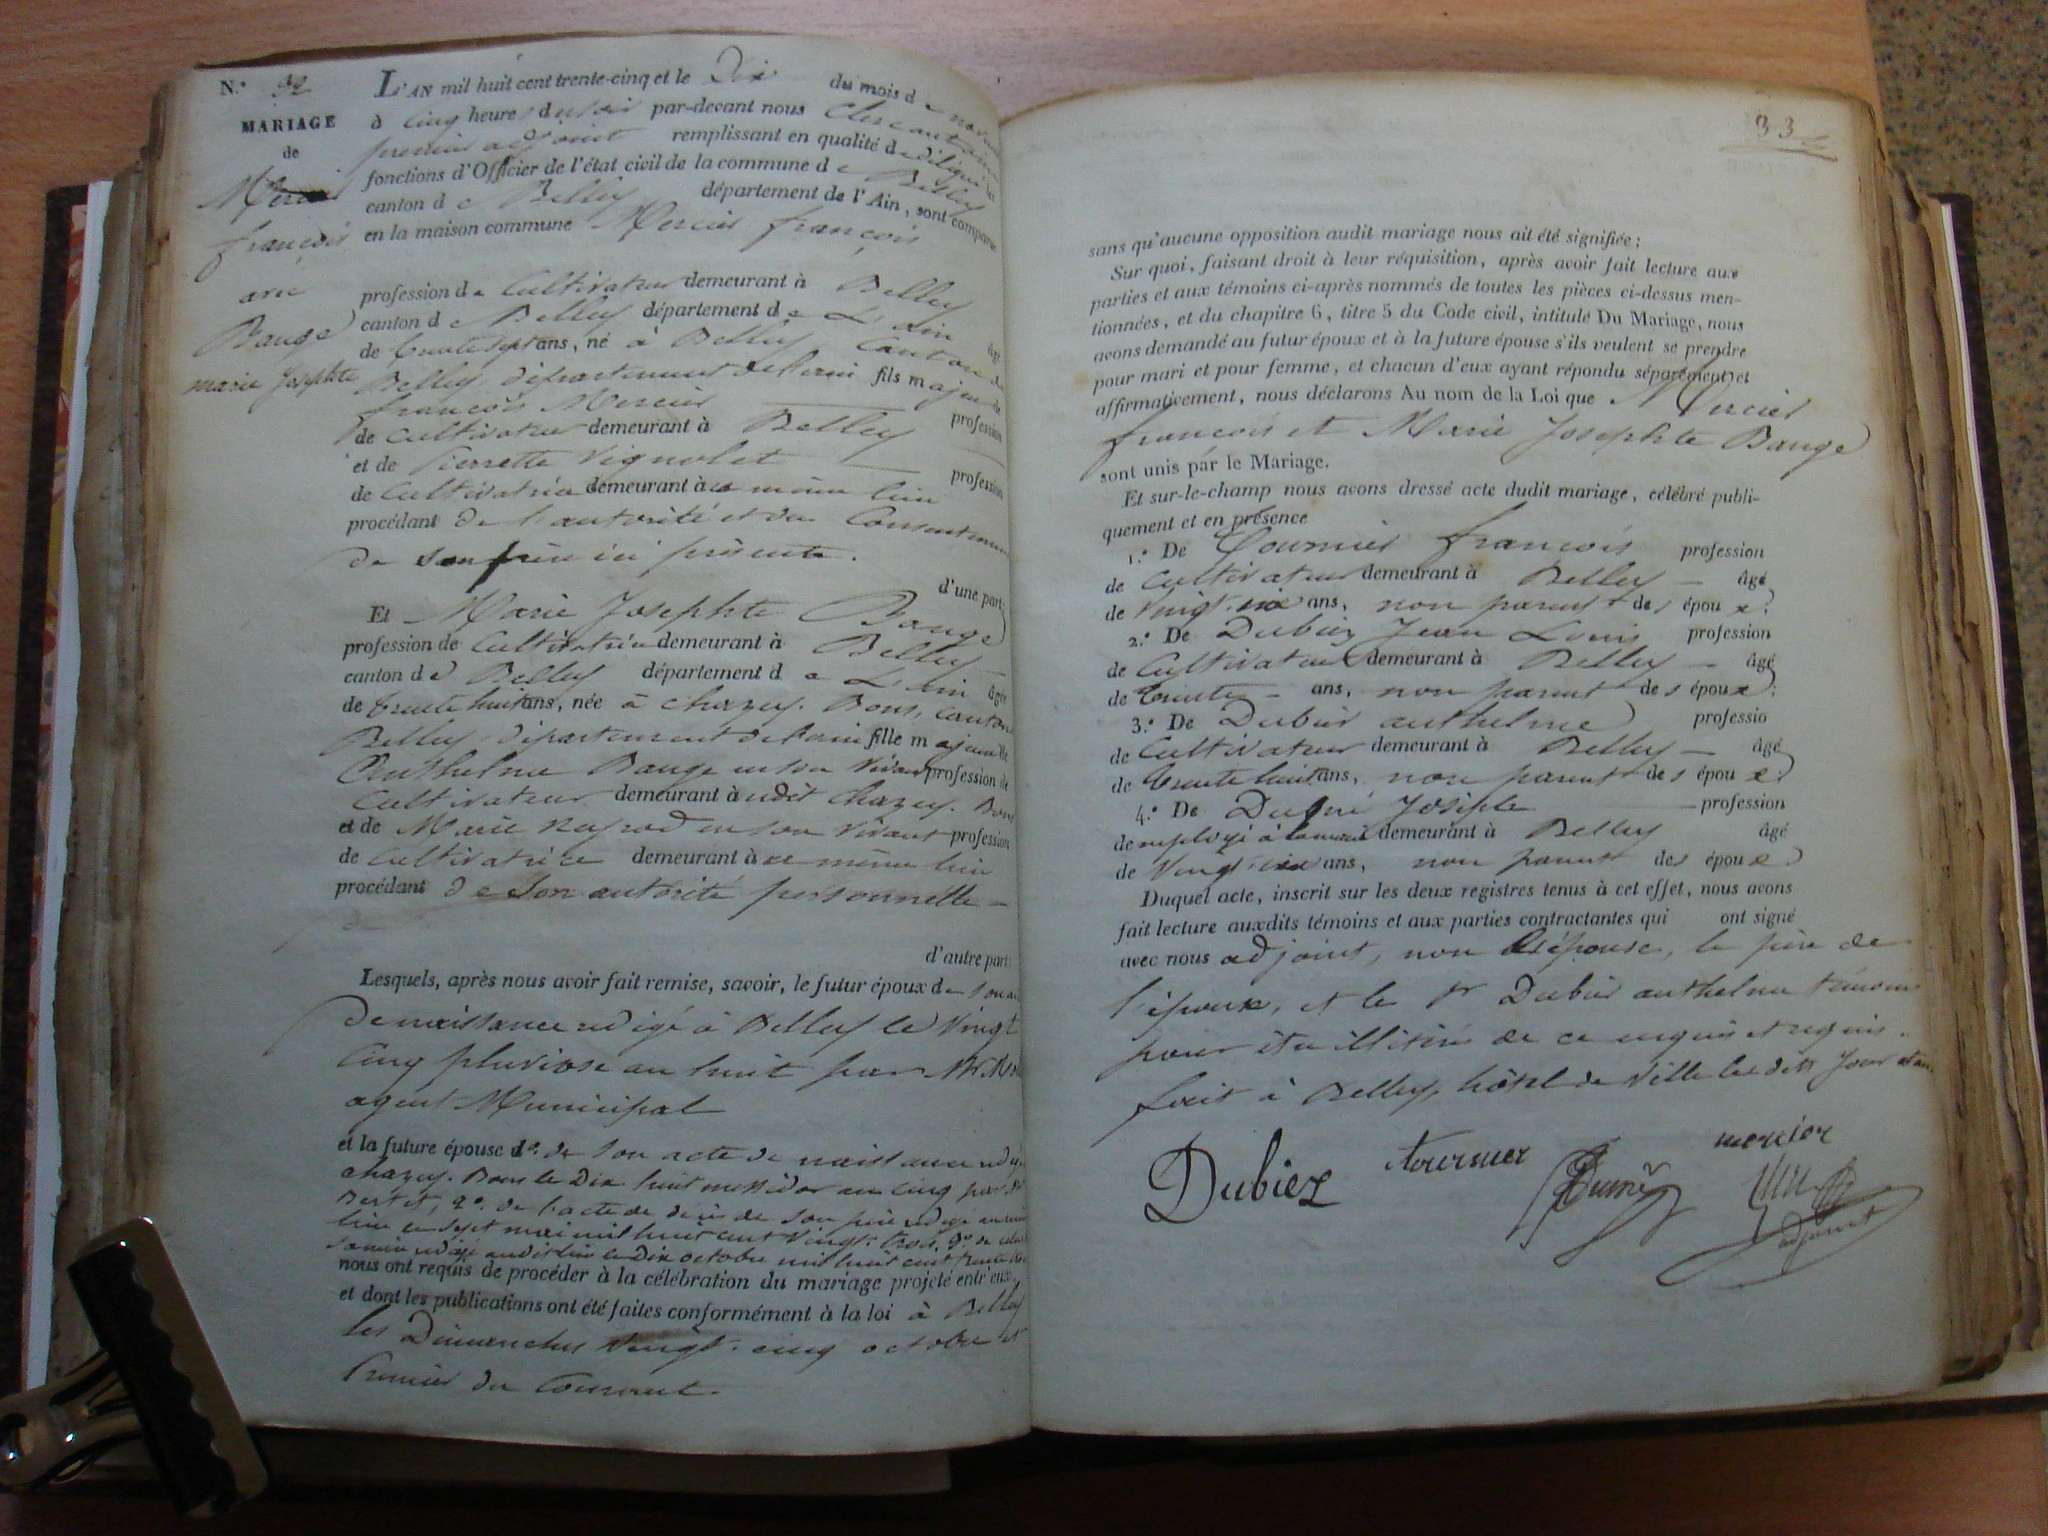 N.° 32
MARIAGE
de
Mercier
françois
avec
Bauge
marie Josephte
L'AN mil huit cent trente-cinq et le Dix du mois de
à cinq heures du soir par-devant nous
premier adjoint remplissant en qualité de délégué
fonctions d'Officier de l'état civil de la commune de Belley
canton de Belley département de l'Ain, sont comparus
en la maison commune Mercier françois
profession de Cultivateur demeurant à Belley
canton de Belley département de L'ain âgé
de trente sept ans, né à Belley Canton de
Belley département de l'ain fils majeur de
françois Mercier profession
de cultivateur demeurant à Belley
et de Pierrette Vignolet profession
de Cultivatrice demeurant à ce même lieu
procédant de l'autorité et du Consentement
de son père ici présente.
d'une part;
Et Marie Josephte Bauge
profession de Cultivatrice demeurant à Belley
canton de Belley département de L'ain âgée
de trente huit ans, née à chazey. Bons, canton
Belley, département de l'ain fille majeure de
Anthelme Bauge en son vivant profession de
Cultivateur demeurant à udit Chazey. Bons
et de Marie en son vivant profession
de Cultivatrice demeurant à ce même lieu
procédant de son autorité personnelle
d'autre part:
Lesquels, après nous avoir fait remise, savoir, le futur époux de son acte
de naissance redigé à Belley le vingt
cinq pluviose an huit par Mr.
agent Municipal
et la future épouse de son acte de naissance redigé
chazey. Bons le Dix huit messidor an cinq par Mr
Bertet, 2°. de l'acte de décès de son père redigé au même
lieu le sept mai mil huit cent vingt. trois, 3°. de celui
sa mère redigé audit lieu le Dix octobre mil huit cent trente
nous ont requis de procéder à la célébration du mariage projeté entr'eux,
et dont les publications ont été faites conformément à la loi à Belley
les Dimanches vingt. cinq octobre et
Premier du Courant.
33
sans qu'aucune opposition audit mariage nous ait été signifiée;
Sur quoi, faisant droit à leur réquisition, après avoir fait lecture aux
parties et aux témoins ci-après nommés de toutes les pièces ci-dessus men-
tionnées, et du chapitre 6, titre 5 du Code civil, intitulé Du Mariage, nous
avons demandé au futur époux et à la future épouse s'ils veulent se prendre
pour mari et pour femme, et chacun d'eux ayant répondu séparément et
affirmativement, nous déclarons Au nom de la Loi que Mercier
françois et Marie Josephte Bauge
sont unis par le Mariage.
Et sur-le-champ nous avons dressé acte dudit mariage, célébré publi-
quement et en présence
1.° De Tournier françois profession
de Cultivateur demeurant à Belley âgé
de vingt-six ans, non parent des époux.
2.° De Dubiez Jean Louis profession
de Cultivateur demeurant à Belley âgé
de Trente ans, non parent des époux;
3.° De Dubiez anthelme professio
de Cultivateur demeurant à Belley âgé
de trente huit ans, non parent des époux;
4.° De Dumé Josephe profession
de employé à la mairie demeurant à Belley âgé
de vingt six ans, non parent des époux.
Duquel acte, inscrit sur les deux registres tenus à cet effet, nous avons
fait lecture auxdits témoins et aux parties contractantes qui ont signé
avec nous adjoint, non l'épouse, le père de
l'époux, et le Sr Dubiez anthelme témoin
pour être illitérés de ce enquis et requis.
fait à Belley, hôtel de ville les dits Jour et an.
Dubiez tournier Dumé mercier
adjoint